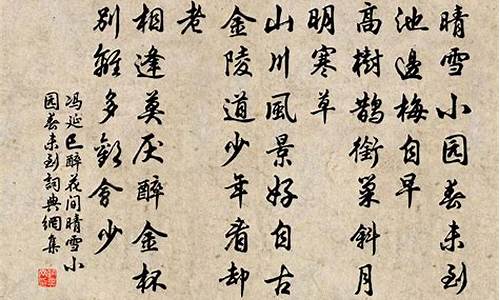 晴雪小园春未到
池边梅自早
高树鹊衔巢斜月
明寒草
山川風景好自古
金陵道少年看却
老
相逢莫厌醉金杯
别離多歡會少
冯延巳醉花间晴雪小
园春未到詞典網集